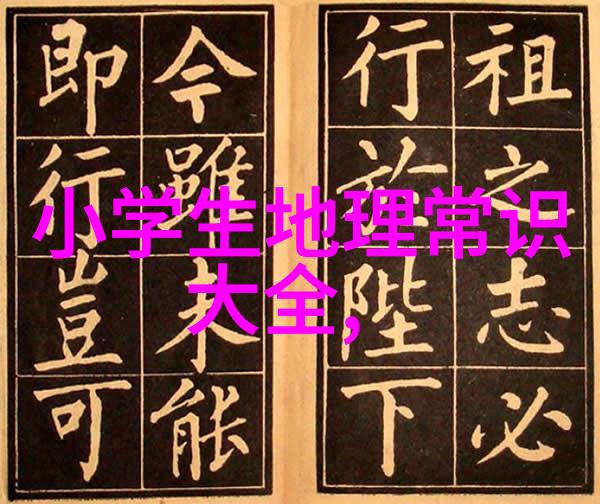 小学生地理常识
大全,
祖之志必
行於陛下
今雖未能
即行豈可